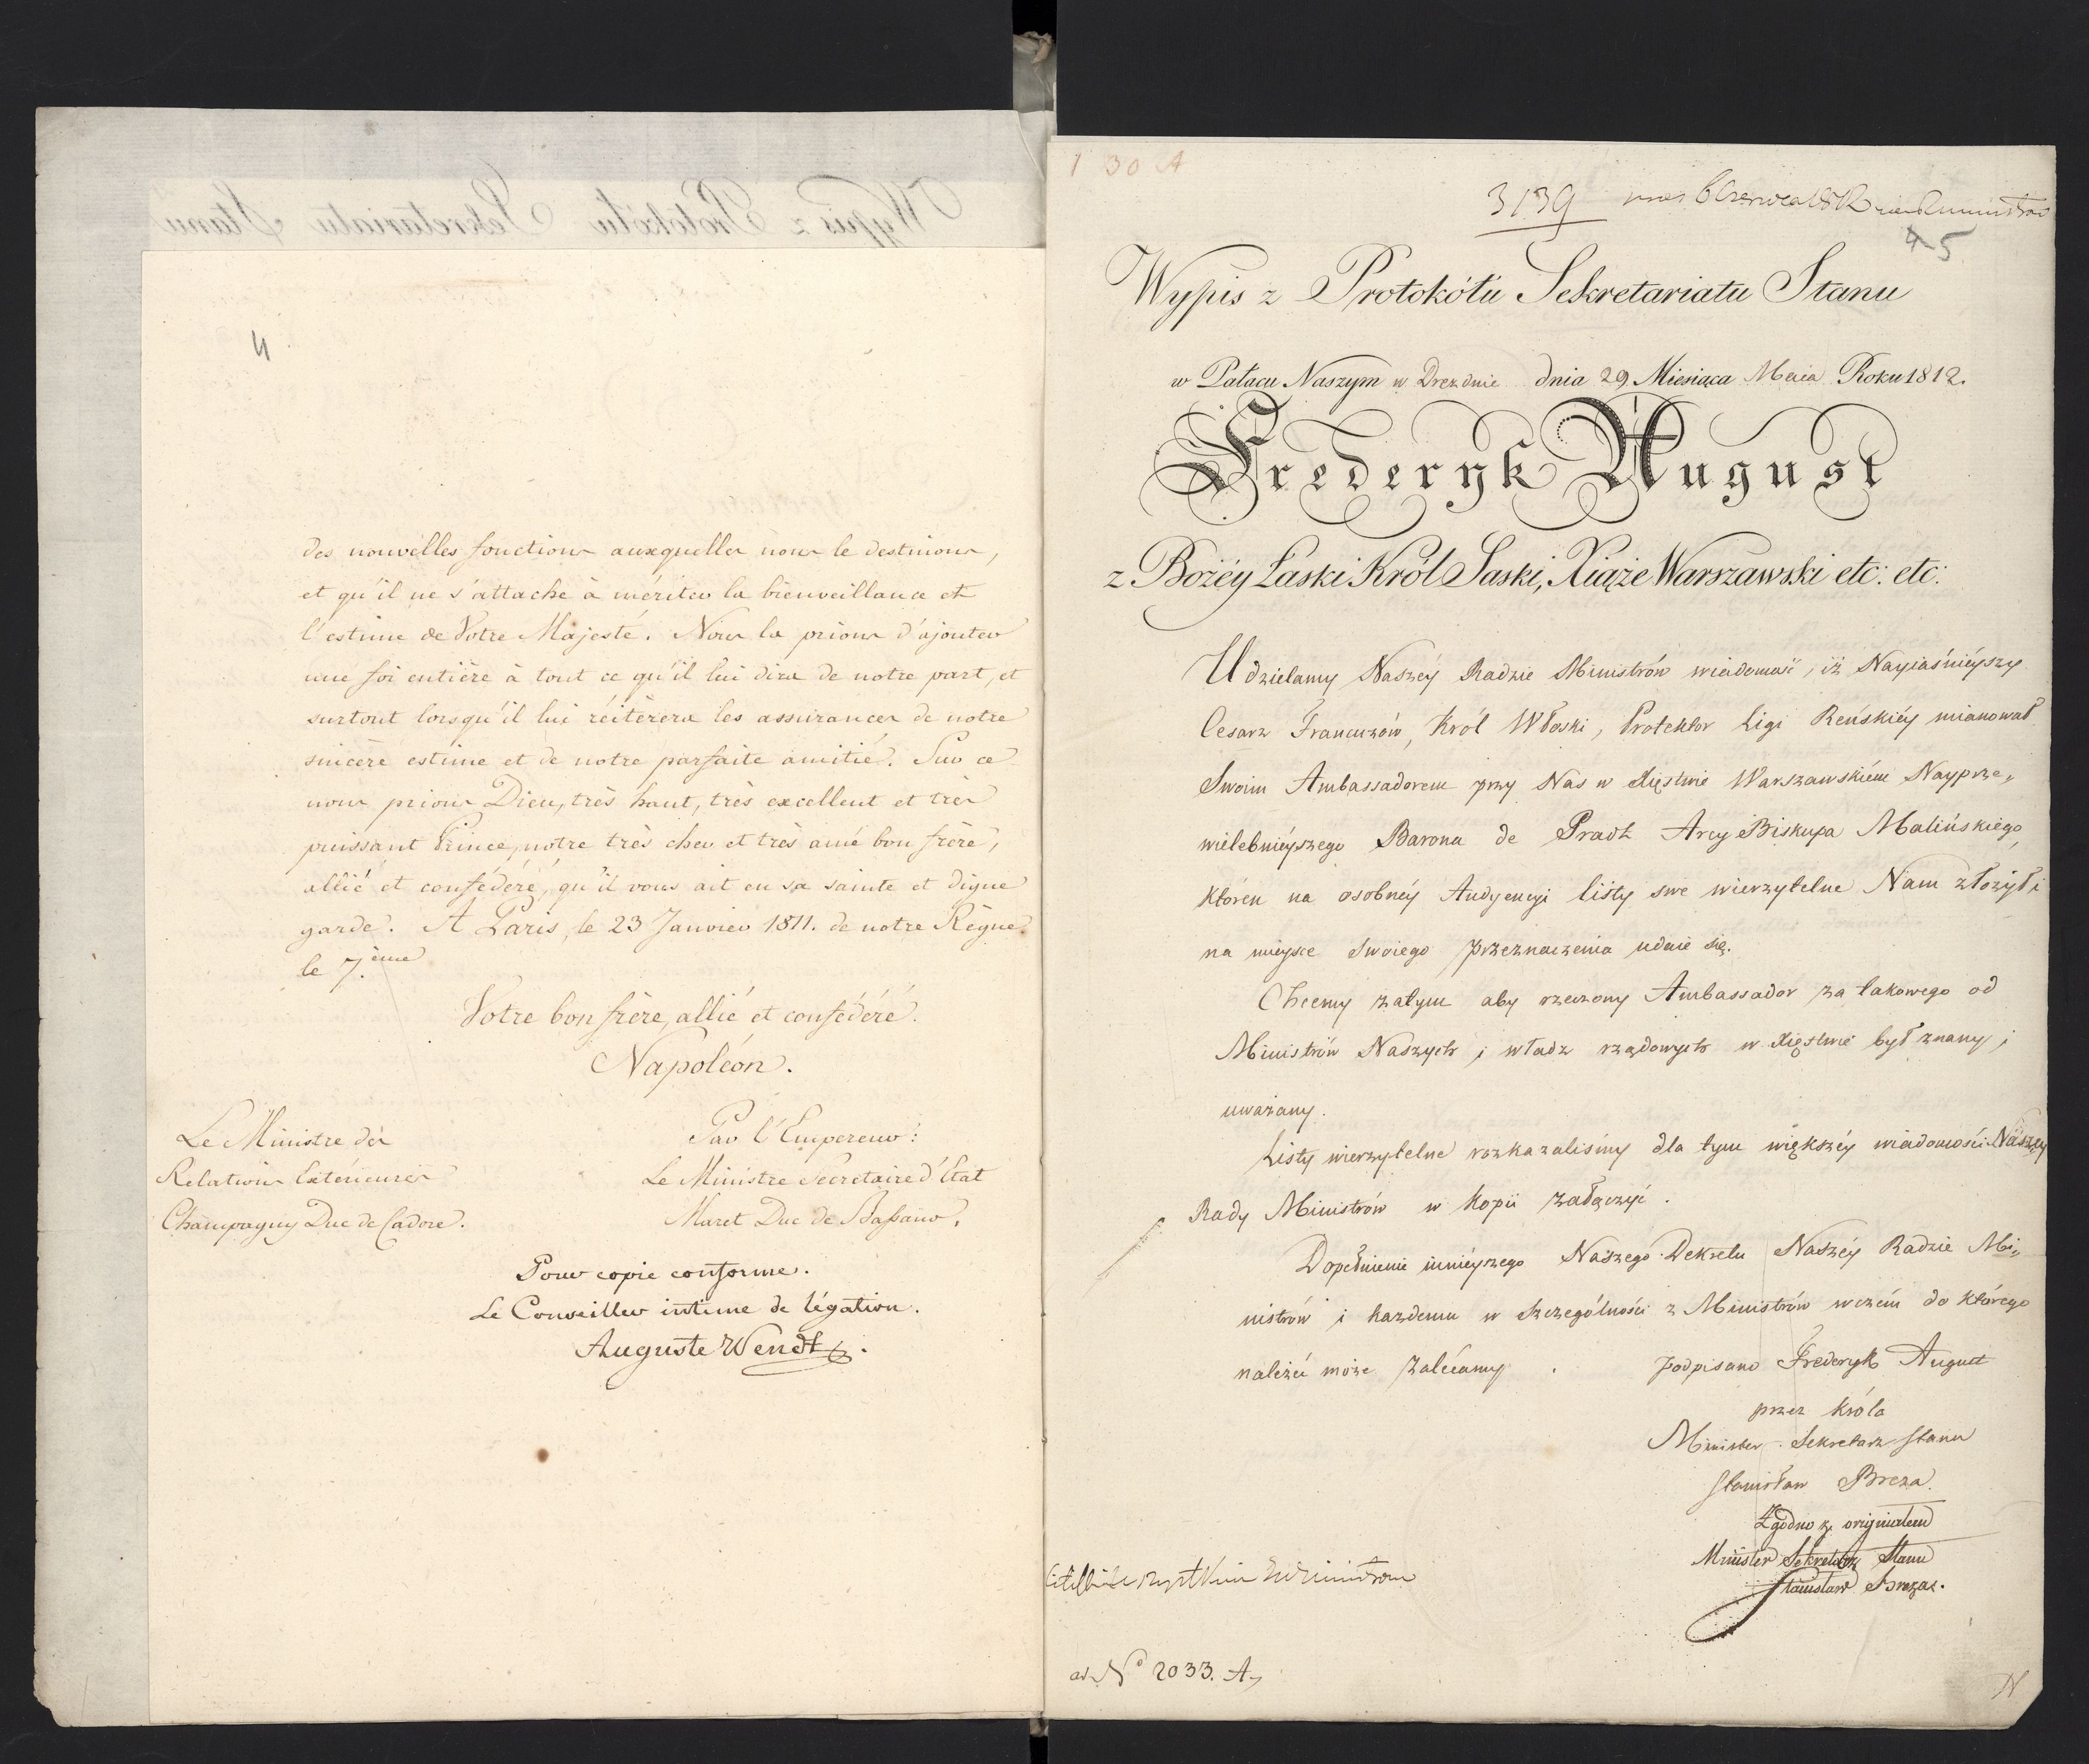 4
des nouvelles fonctions auxquelles nous le destinions,
et qu'il ne s'attache à mériter la bienveillance et
l'estime de Votre Majesté. Nous la prions d'ajouter
une foi entière à tout ce qu'il lui dira de notre part, et
surtout lorsqu'il lui réitèrera les assurances de notre
sincère estime et de notre parfaite amitié. Sur ce
nous prions Dieu, très haut, très excellent et très
puissant Prince, notre très cher et très amé bon frère,
allié et confédéré, qu'il vous ait en sa sainte et digne
garde. A Paris, le 23 Janvier 1811. de notre Règne
le 7.ème
Votre bon frère, allié et confédéré.
Napoléon.
Le Ministre des
Relations Extérieures
Champagny Duc de Cadore.
Par l'Empereur:
Le Ministre Secrétaire d'Etat
Maret Duc de Bassano.
Pour copie conforme.
Le Conseiller intime de légation.
Auguste Wendt.
1 30 A
3139 6 Czerwca 1812
4 5
Wypis z Protokółu Sekretariatu Stanu
w Pałacu Naszym w Dreznie dnia 29 Miesiąca Maia Roku 1812.
Frederyk August
z Bożéy Łaski Król Saski, Xiąże Warszawski etc: etc:
Udzielamy Naszéy Radzie Ministrów wiadomość, iż Nayiaśniéyszy
Cesarz Francuzów, Król Włoski, Protektor Ligi Reńskiéy mianował
Swoim Ambassadorem przy Nas w Xięstwie Warszawskiém Nayprze„
wielebniéyszego Barona de Pradt Arcy Biskupa Malińskiego,
któren na osobnéy Audyencyi listy swe wierzytelne Nam złożył i
na mieysce swoiego przeznaczenia udaie się.
Chcemy zatym aby rzeczony Ambassador za takowego od
Ministrów Naszych i władz rządowych w Xięstwie był znany i
uważany.
Listy wierzytelne rozkazaliśmy dla tym większéy wiadomości Naszéy
Rady Ministrów w kopii załączyć.
Dopełnienie ninieyszego Naszego Dekretu Naszéy Radzie Mi„
nistrów i każdemu w szczególności z Ministrów wczém do którego
należéć może zalécamy.
podpisano Frederyk August
przez Króla
Minister Sekretarz Stanu
Stanisław Breza.
Zgodno z originałem
Minister Sekretarz Stanu
Stanisław Breza.
ad No 2033. A.